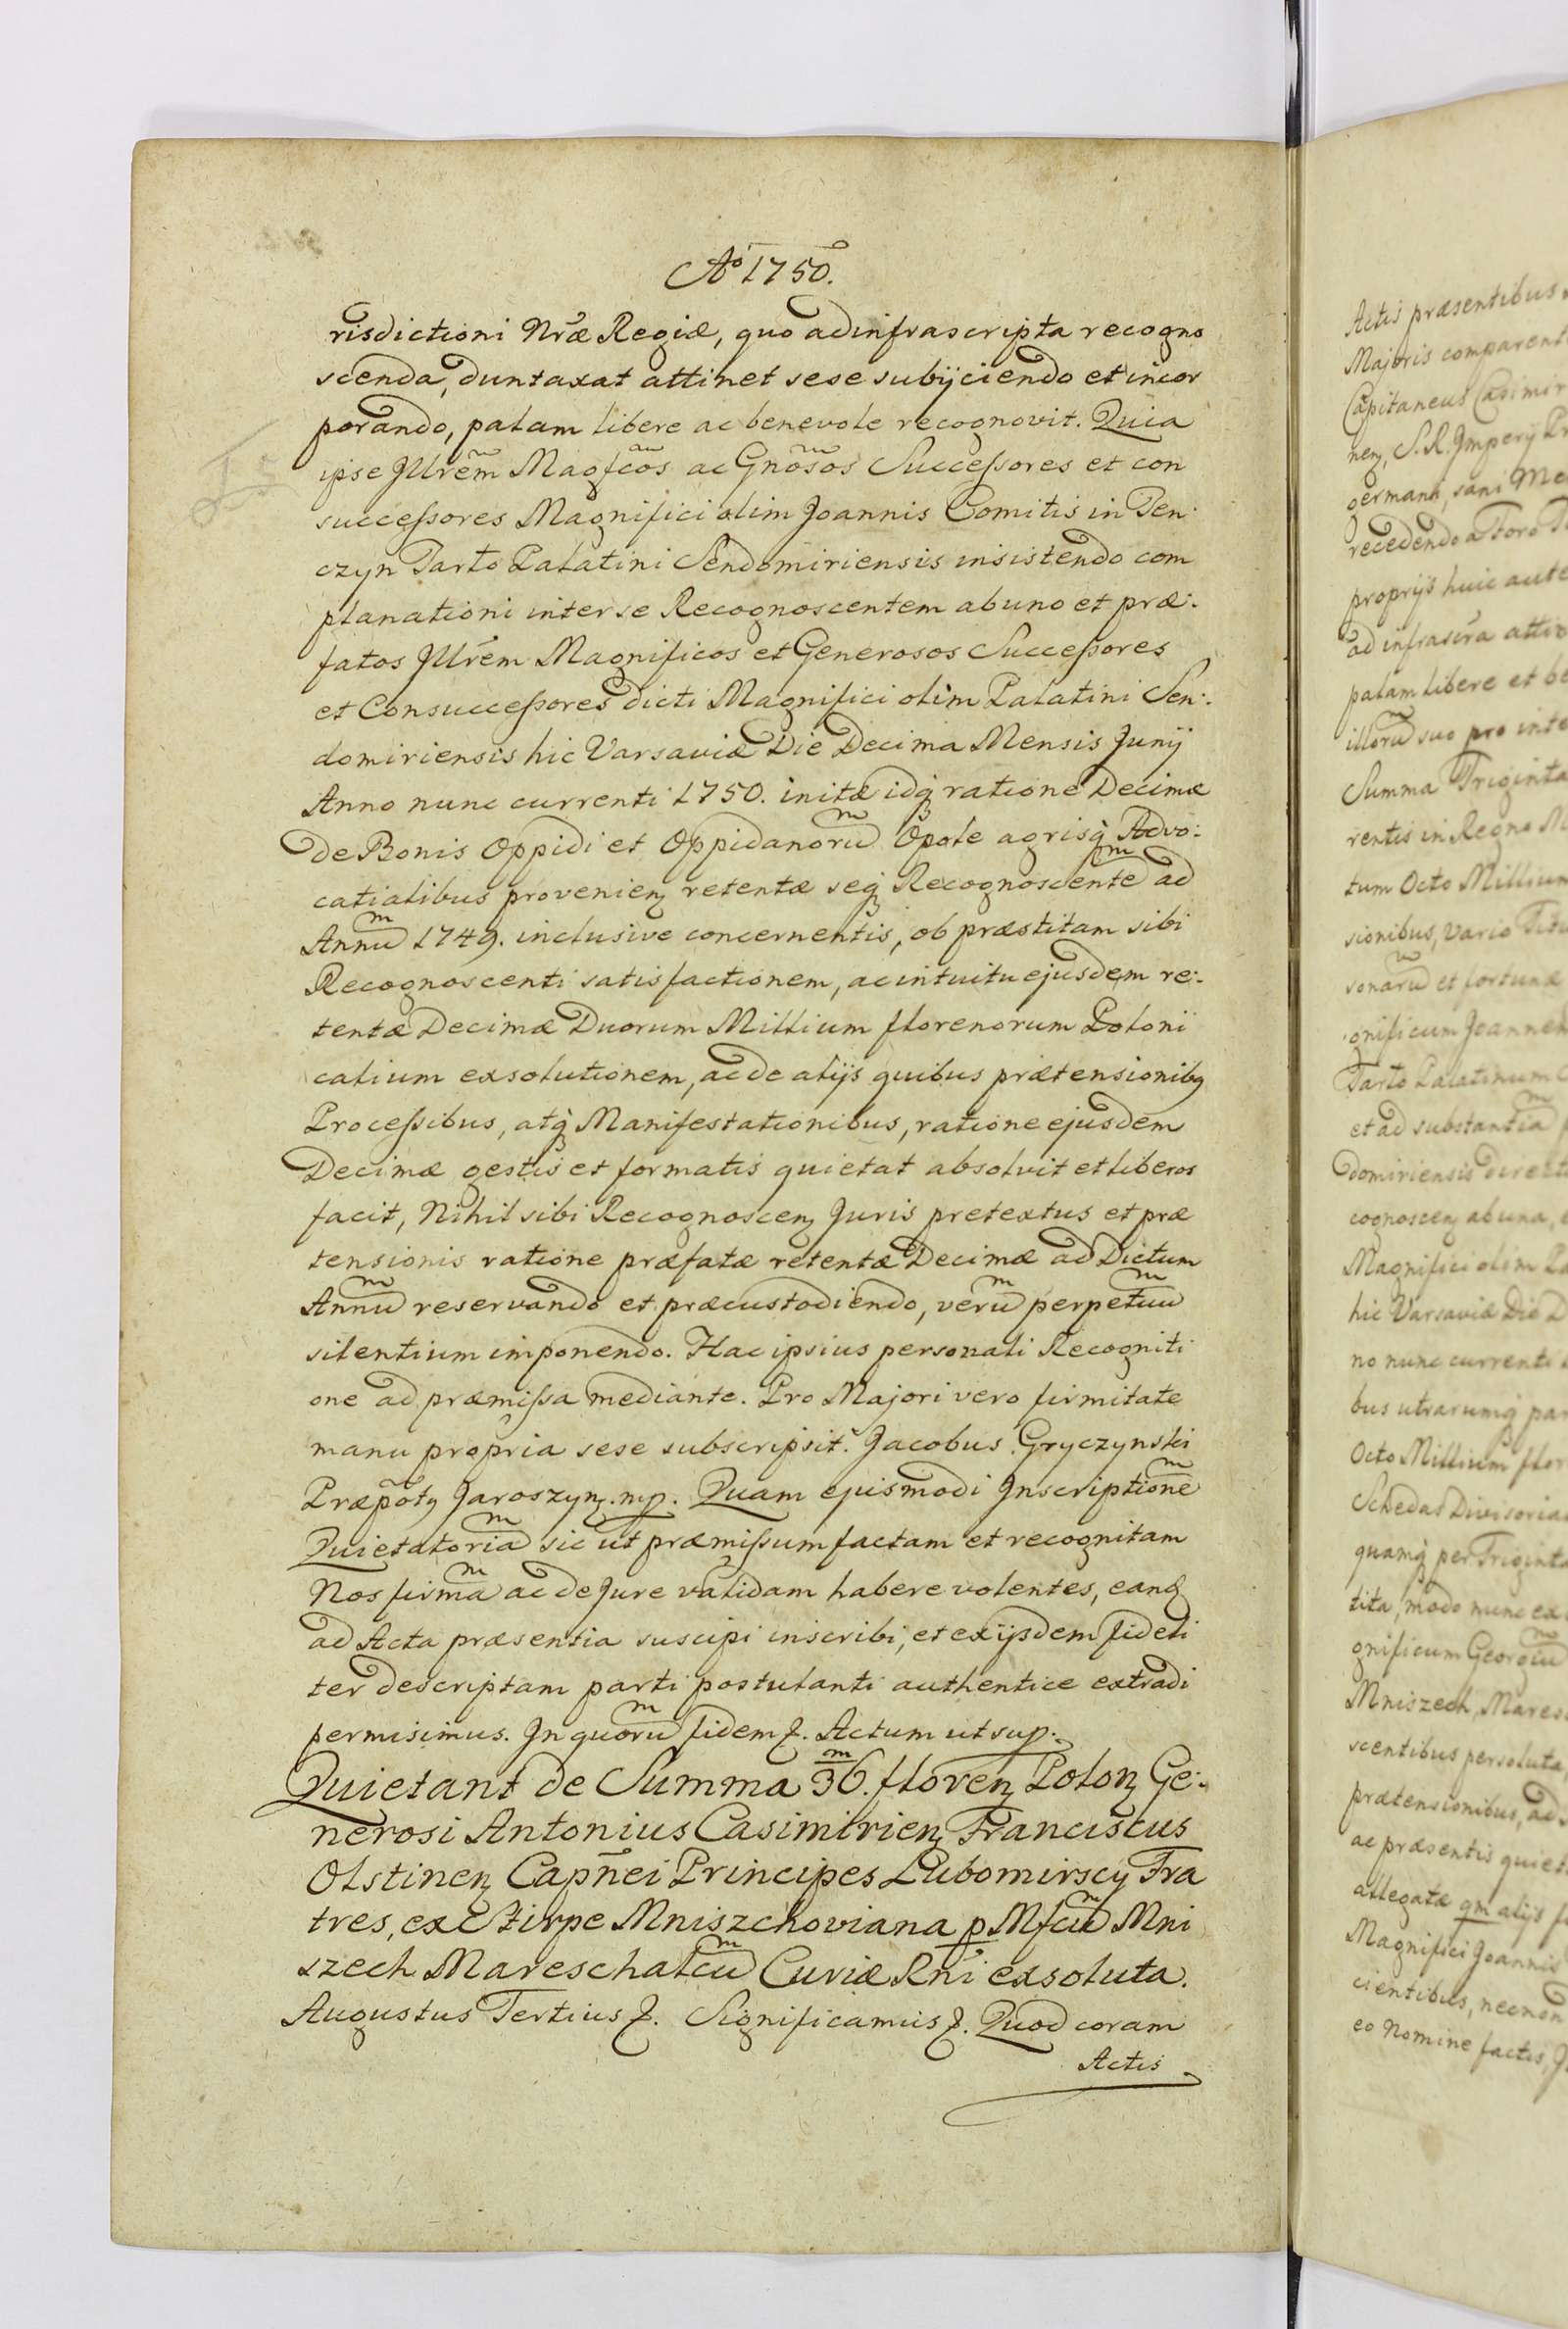 Aō 1750.
risdictioni Nr̃æ Regiæ, quo ad infrascripta recogno
scenda, duntaxat attinet sese subijciendo et incor
porando, palam libere ac benevole recognovit. Quia
ipse Jllrẽm Magfcõs ac Gnõsos Successores et con
successores Magnifici olim Joannis Comitis in Ten:
czyn Tarło Palatini Sendomiriensis insistendo com
planationi inter se Recognoscentem ab uno et præ:
fatos Jllrẽm Magnificos et Generosos Successores
et Consuccessores dicti Magnifici olim Palatini Sen:
domiriensis hic Varsaviæ Die Decima Mensis Junij
Anno nunc currenti 1750. initæ idq̃ ratione Decimæ
de Bonis Oppidi et Oppidanorũ Opole agrisq̃ Advo:
catialibus provenieñ retentæ seq̃ Recognoscentẽ ad
Annũ 1749. inclusive concernentis, ob præstitam sibi
Recognoscenti satisfactionem, ac intuitu ejusdem re:
tentæ Decimæ Duorum Millium florenorum Poloni
calium exsolutionem, ac de alijs quibus prætensionibꝯ
Processibus, atq̃ Manifestationibus, ratione ejusdem
Decimæ gestis et formatis quietat absolvit et liberos
facit, Nihil sibi Recognosceñ Juris pretextus et præ
tensionis ratione præfatæ retentæ Decimæ ad Dictum
Annũ reservando et præcustodiendo, verũ perpetuũ
silentium imponendo. Hac ipsius personali Recogniti
one ad præmissa mediante. Pro Majori vero firmitate
manu propria sese subscripsit. Jacobus Gryczynski
Præpõtꝯ Jaroszyñ. mp. Quam ejusmodi Jnscriptionẽ
Quietatoriã sic ut præmissum factam et recognitam
Nos firmã ac de Jure validam habere volentes, eanq̃
ad Acta præsentia suscipi inscribi, et ex ijsdem fideli
ter descriptam parti postulanti authentice extradi
permisimus. Jn quorũ fidem ꝛ. Actum ut sup.
Quietant de Summa 36.m floreñ Poloñ Ge:
nerosi Antonius Casimirieñ Franciscus
Olstineñ Capñei Principes Lubomirscy Fra
tres, ex Stirpe Mniszchoviana p Mfcũ Mni
szech Mareschalcũ Curiæ Rñi exsoluta.
Augustus Tertius ꝛ. Significamus ꝛ. Quod coram
Actis
Actis præsentibus
Majoris comparent
Capitaneus Casimir
neñ, S. R. Jmperij Pr
germani, sani Me
recedendo a Foro
proprijs huic aute
ad infrascra atti
palam libere et be
illorũ suo pro inte
Summa Triginta
rentis in Regno M
tum Octo Millium
sionibus, vario Titu
sonarũ et fortunæ
gnificum Joannem
Tarło Palatinum
et ad substantiã
domiriensis direct
cognosceñ ab una,
Magnifici olim Pa
hic Varsaviæ Die D
no nunc currenti
bus utrarumq̃ par
Octo Millium flor
Schedas Divisoria
quamq̃ per Triginta
tita, modo nunc ex
gnificum Georgiũ
Mniszech, Mares
scentibus persoluta
prætensionibus, ad
ac præsentis quiet
allegatæ qm alijs
Magnifici Joannis
cientibus, necnon
eo Nomine factis,